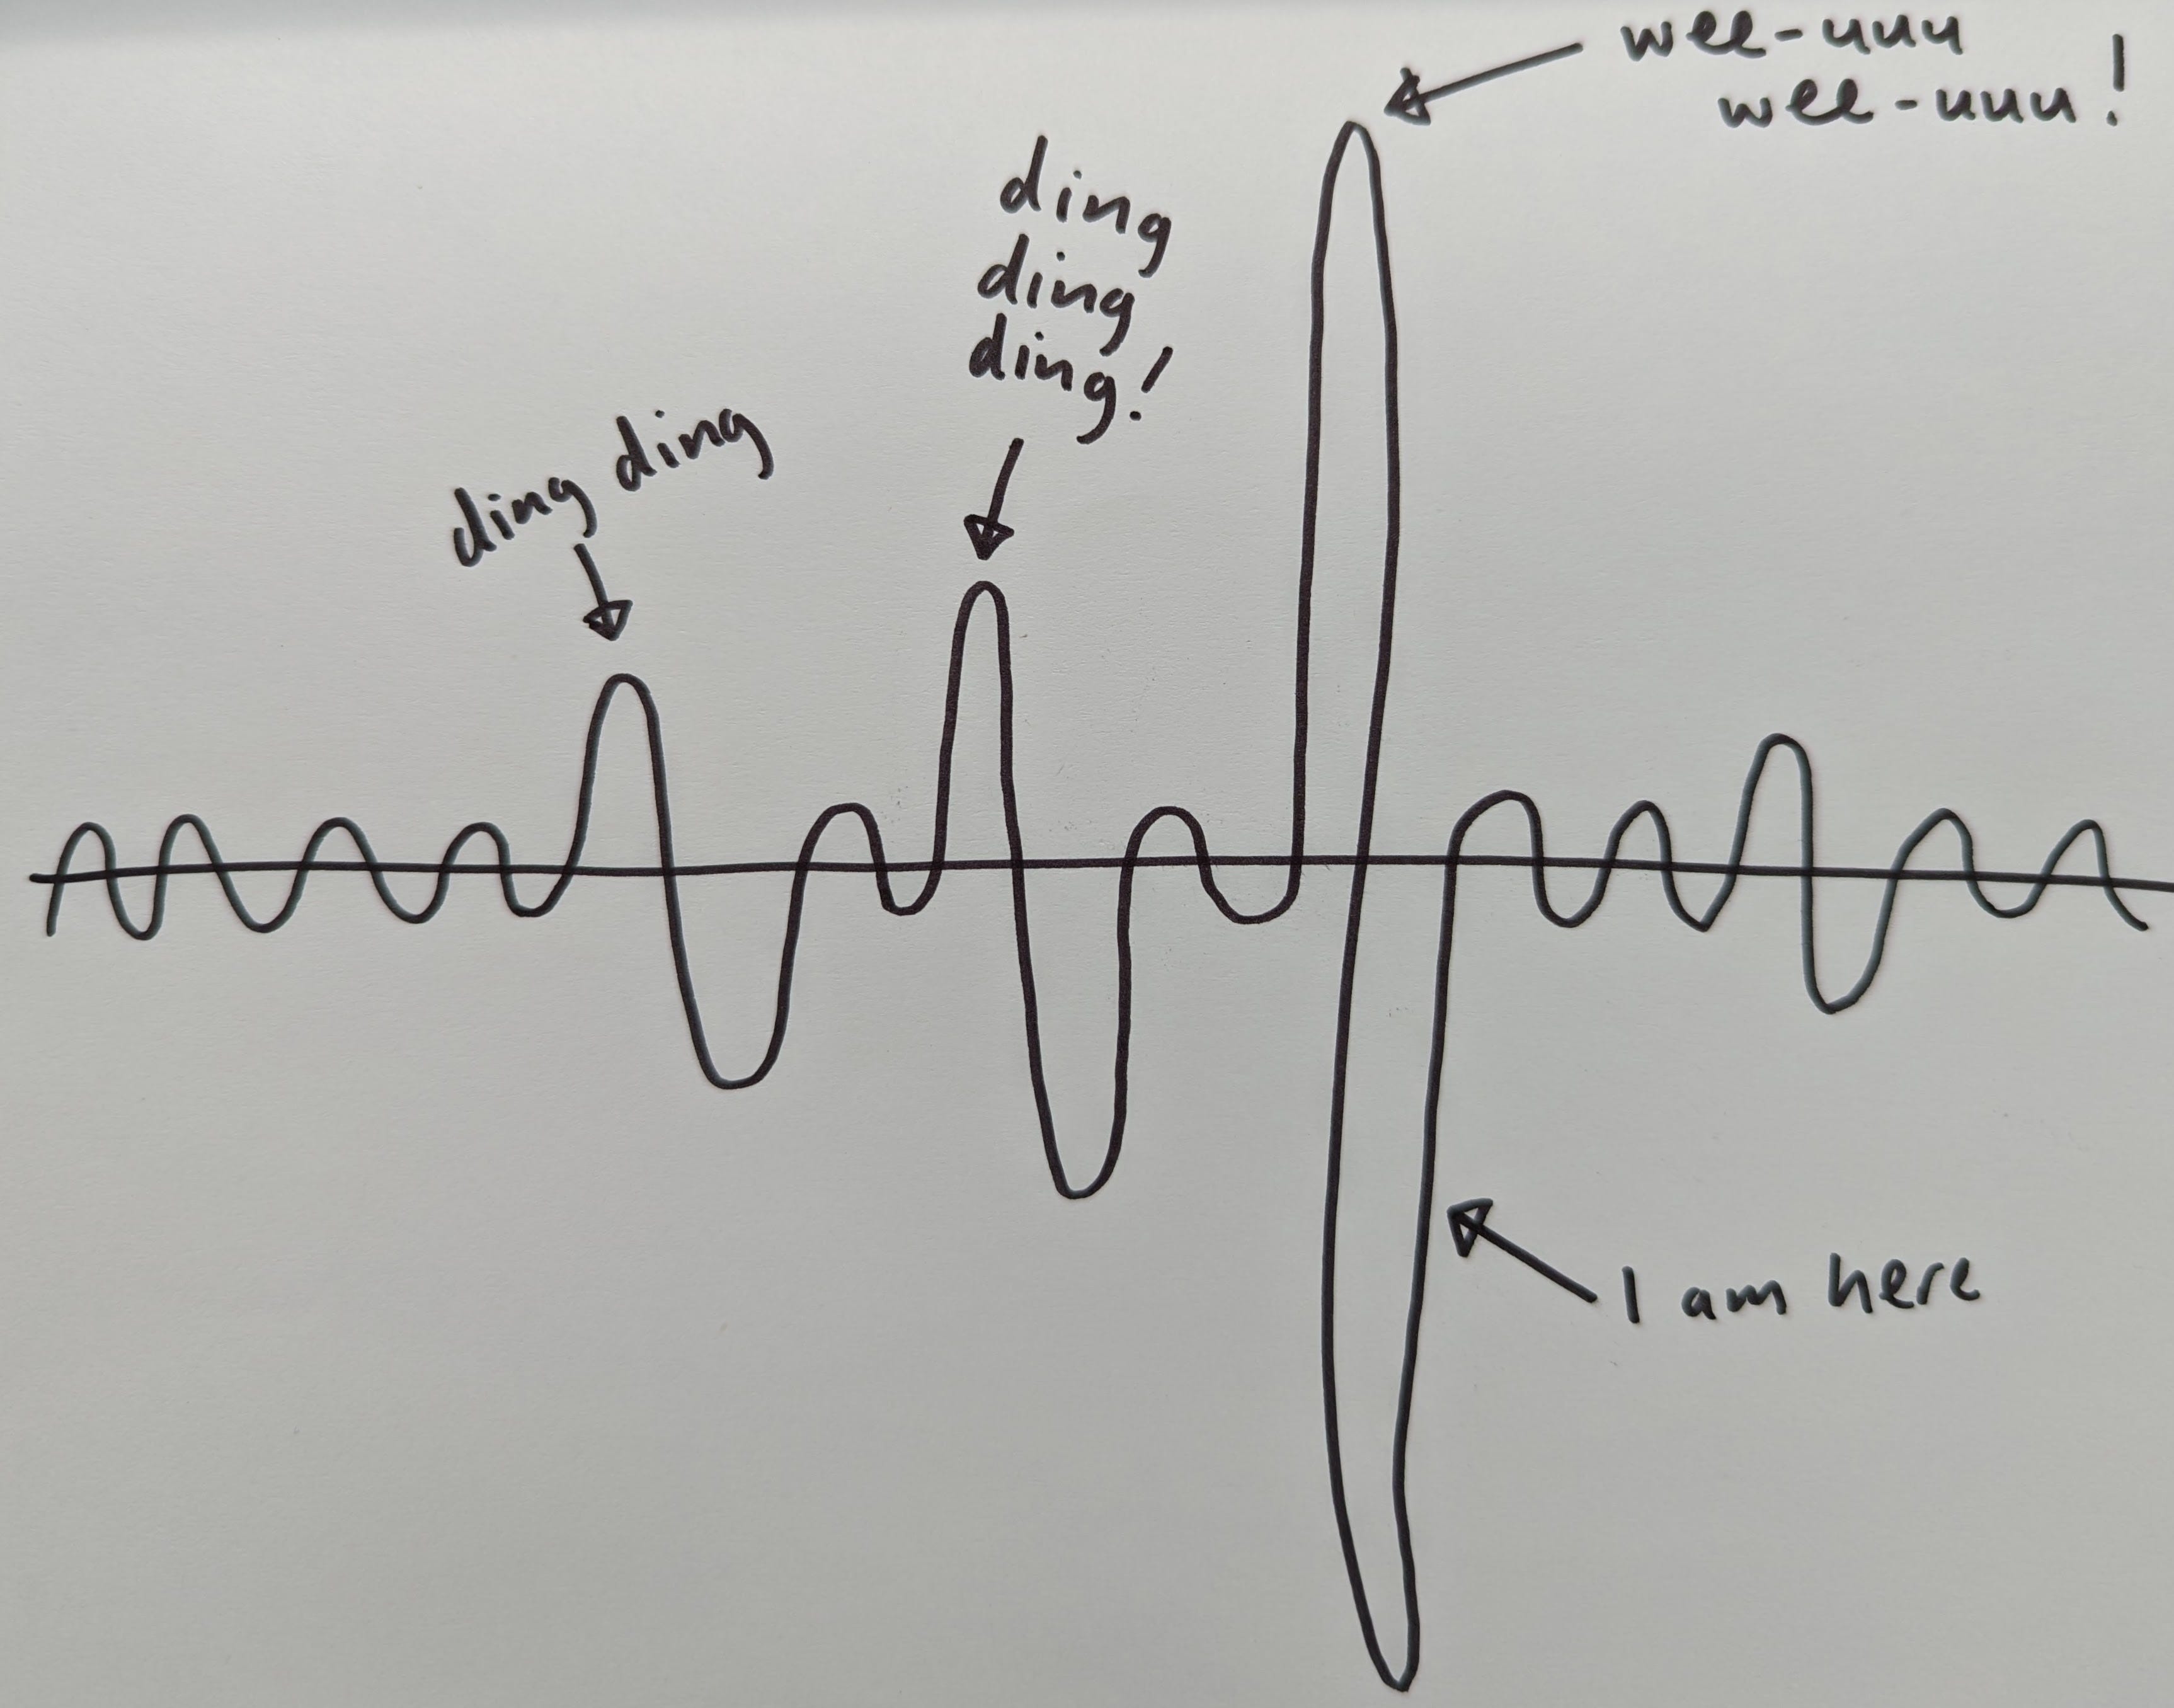 wee-uuu
wee-uuu!
ding
ding
ding!
ding ding
I am here